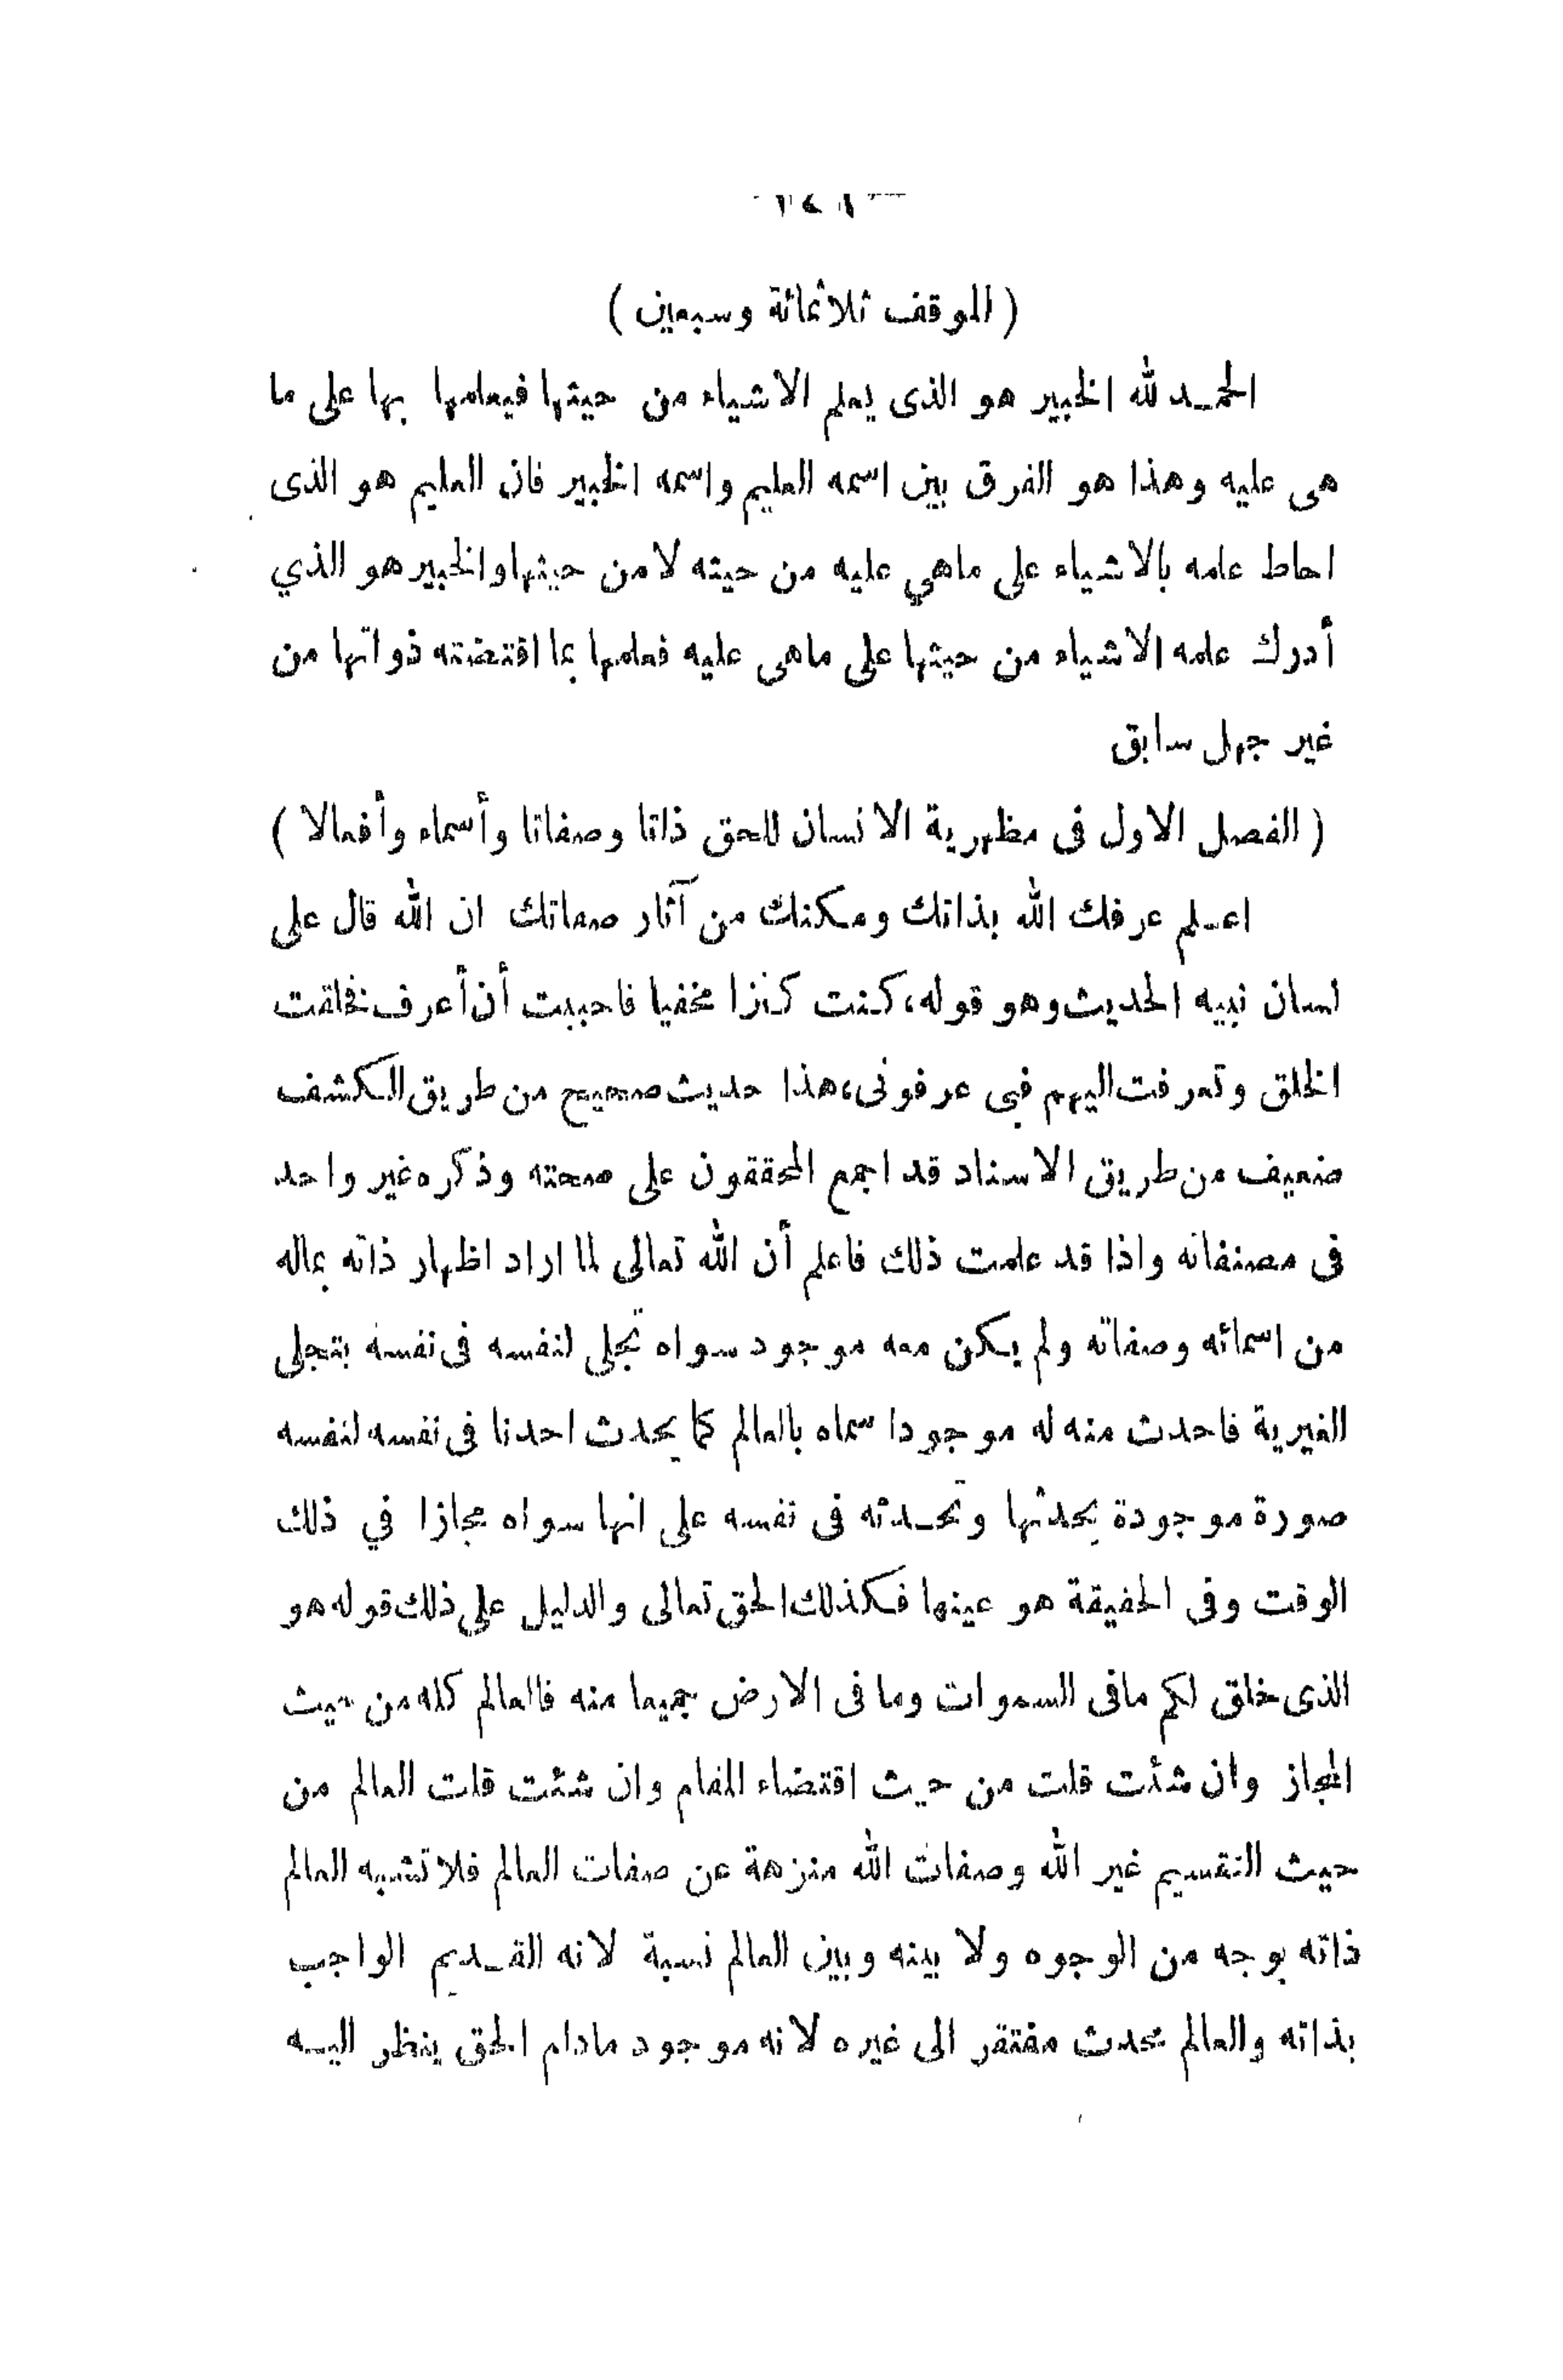 ( الموقف ثلاثمائة وسبعين )
الحمد لله الخبير هو الذى يعلم الاشياء من حيثها فيعلمها بها على ما
هى عليه وهذا هو الفرق بين اسمه العليم واسمه الخبير فان العليم هو الذى
احاط علمه بالاشياء على ماهي عليه من حيثه لا من حيثها والخبير هو الذي
أدرك علمه الاشياء من حيثها على ماهى عليه فعلمها بما اقتضته ذواتها من
غير جهل سابق
( الفصل الاول فى مظهرية الانسان للحق ذاتا وصفاتا وأسماء وأفعالا )
اعلم عرفك الله بذاتك ومكنك من آثار صفاتك ان الله قال على
لسان نبيه الحديث وهو قوله، كنت كنزا مخفيا فاحببت أن أعرف فخلقت
الخلق وتعرفت اليهم فبى عرفونى، هذا حديث صحيح من طريق الكشف
ضعيف من طريق الاسناد قد اجمع المحققون على صحته وذكره غير واحد
فى مصنفاته واذا قد علمت ذلك فاعلم أن الله تعالى لما اراد اظهار ذاته بماله
من اسمائه وصفاته ولم يكن معه موجود سواه تجلى لنفسه فى نفسه بتجلى
الغيرية فاحدث منه له موجودا سماه بالعالم كما يحدث احدنا فى نفسه لنفسه
صورة موجودة يحدثها وتحدثه فى نفسه على انها سواه مجازا في ذلك
الوقت وفى الحقيقة هو عينها فكذلك الحق تعالى والدليل على ذلك قوله هو
الذى خلق لكم مافى السموات وما فى الارض جميعا منه فالعالم كله من حيث
المجاز وان شئت قلت من حيث اقتضاء المقام وان شئت قلت العالم من
حيث التقسيم غير الله وصفات الله منزهة عن صفات العالم فلا تشبه العالم
ذاته بوجه من الوجوه ولا بينه وبين العالم نسبة لانه القديم الواجب
بذاته والعالم محدث مفتقر الى غيره لانه موجود مادام الحق ينظر اليه